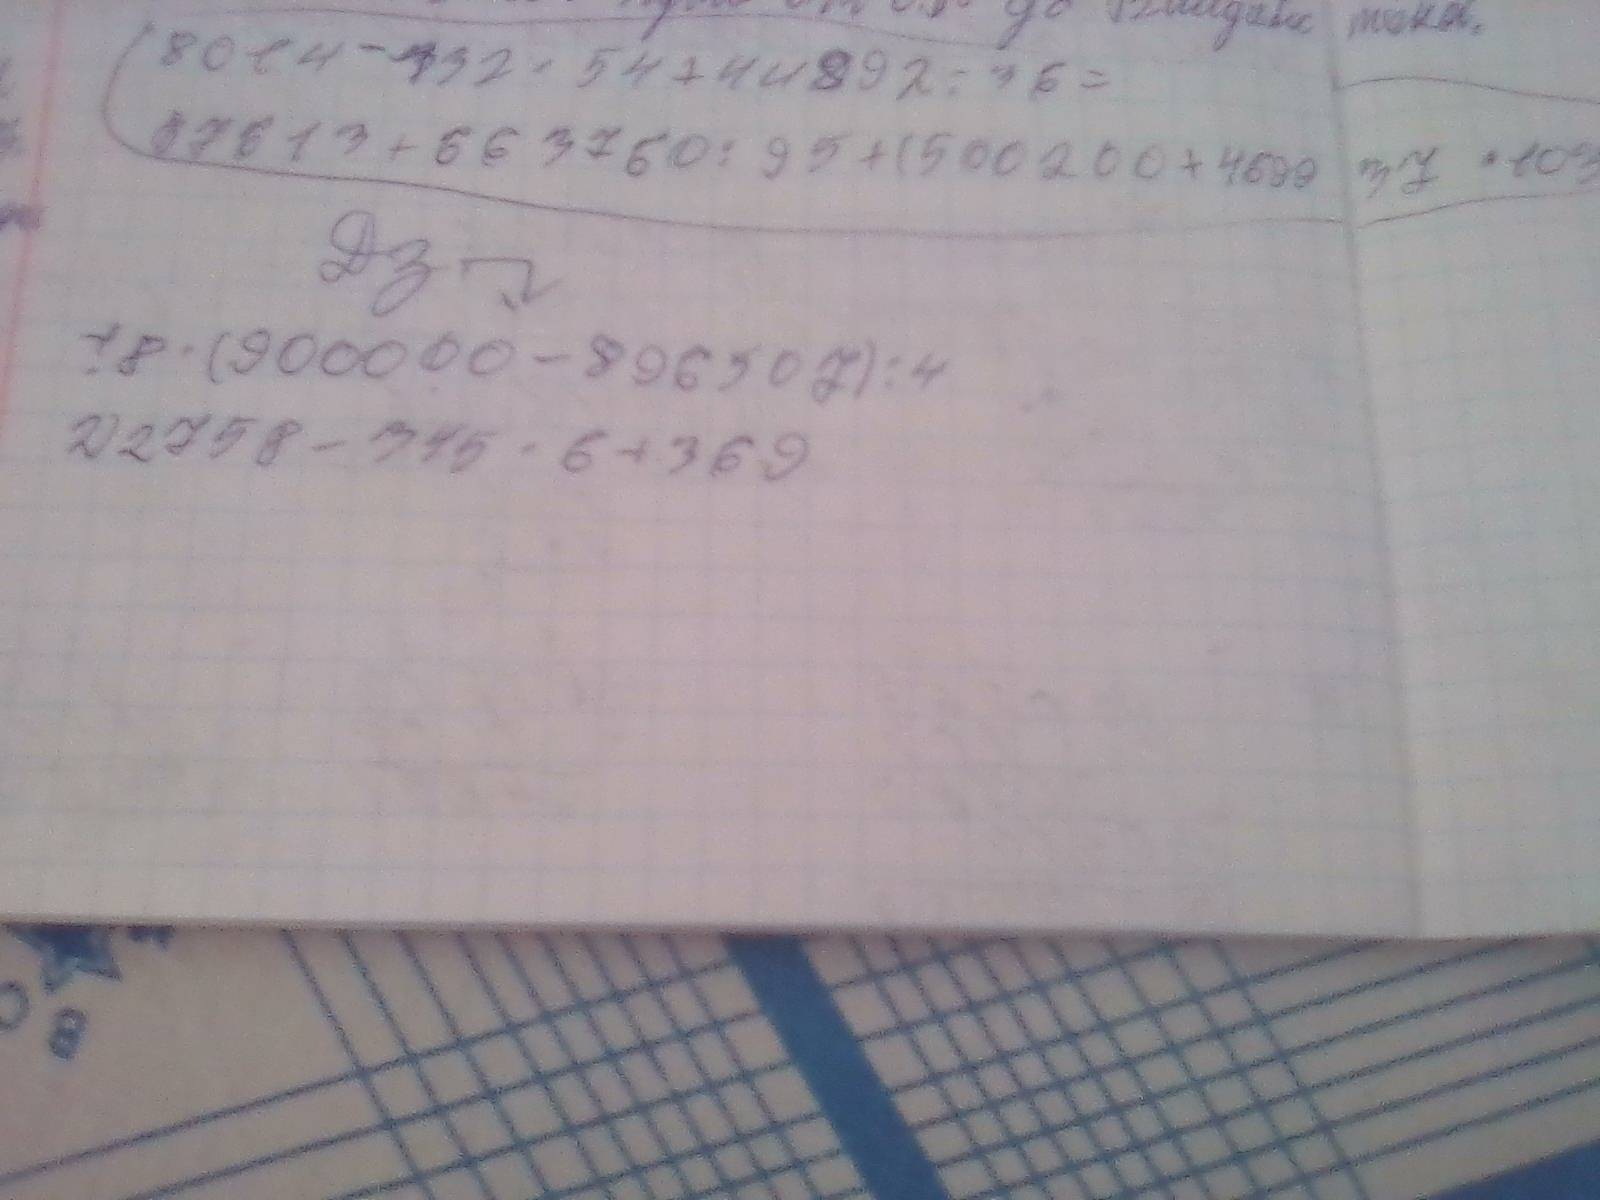 до тока.
8014-132·54+44892:36=
87613+663760:95+(500200+4699 37 ·103
Дз
78·(900000-896507):4
2)2758-315·6+369
В С